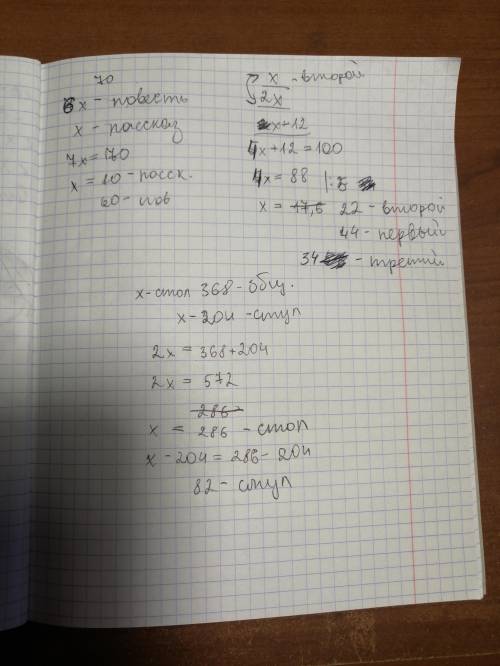 70
6x - повесть
x - рассказ
7x = 70
x = 10 - расск.
60 - пов
x - второй
2x
x+12
4x + 12 = 100
4x = 88
x = 17,6 22 - второй
44 - первый
34 - третий
x - стол 368 - общ.
x - 204 - стул
2x = 368 + 204
2x = 572
286
x = 286 - стол
x - 204 = 286 - 204
82 - стул